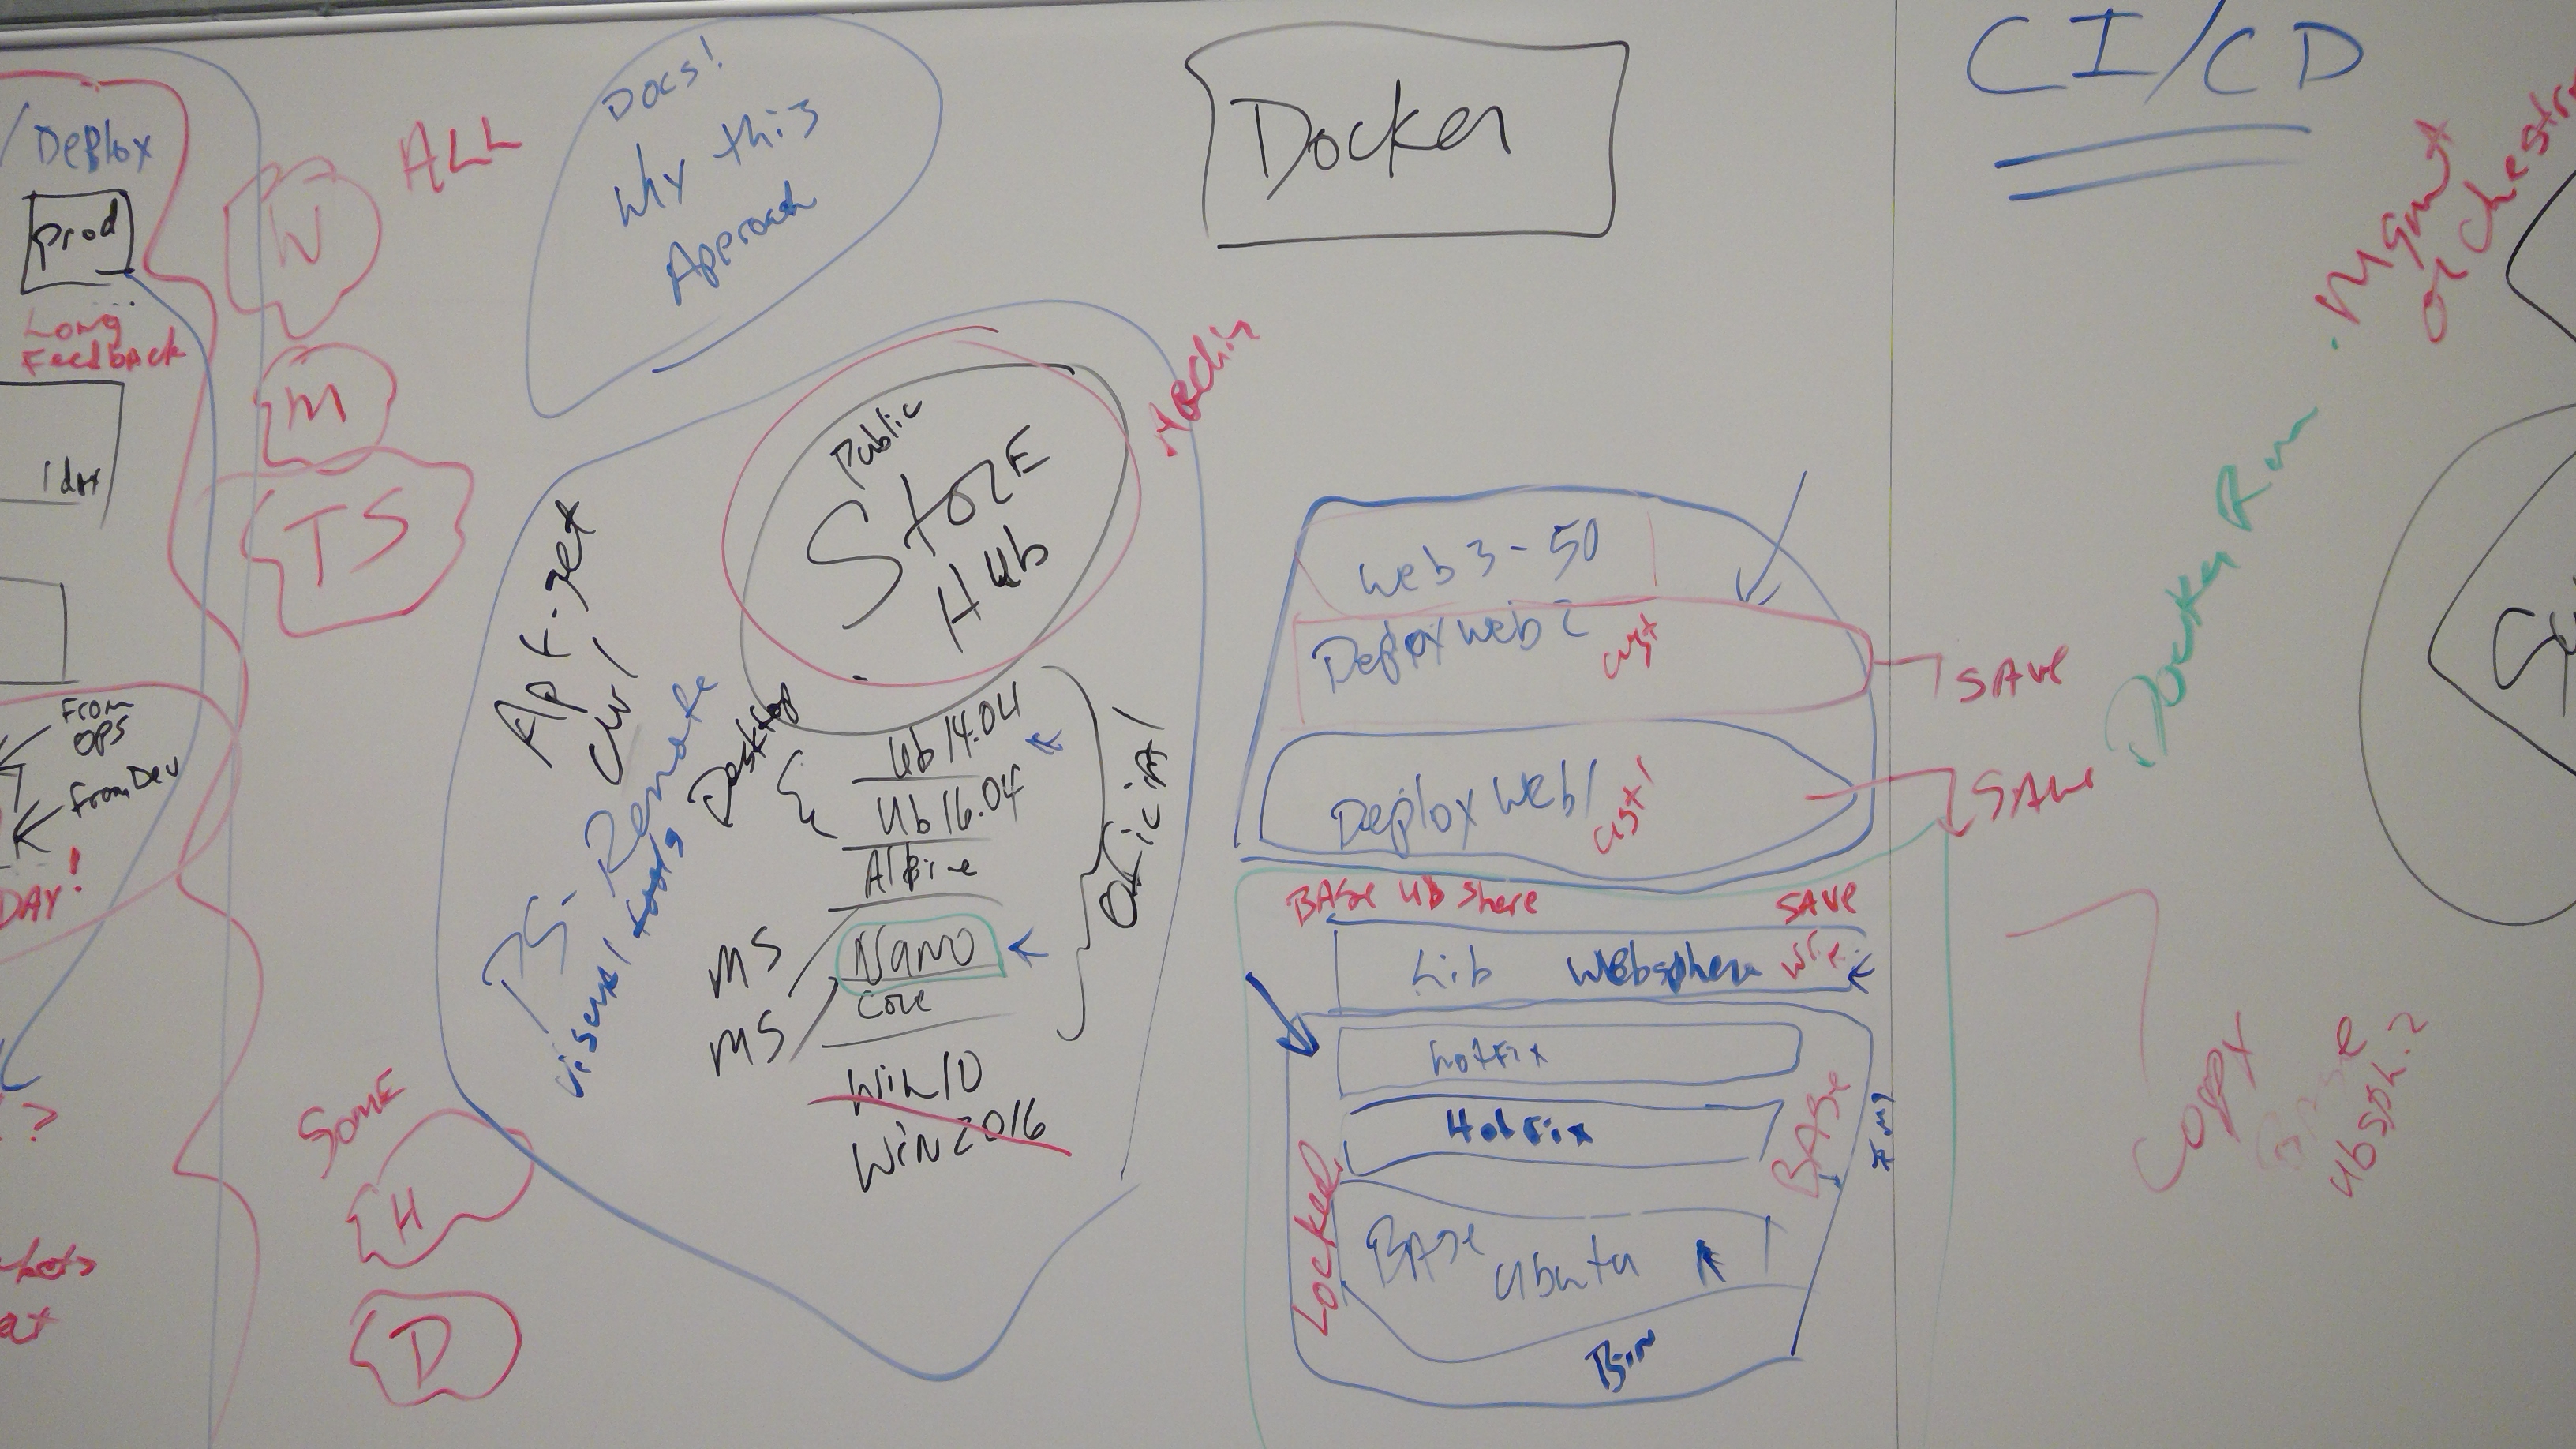 /Deploy
prod
Long
Feedback
1 day
From
OPS
From Dev
DAY!
?
at
ALL
W
M
TS
SOME
H
D
Docs!
Why this
Approach
Public
Store
Hub
Apt-get
curl
PS-Remote
Visual tools
Desktop
Ub 14.04
Ub 16.04
Alpine
Nano
Core
MS
MS
Win 10
Win 2016
Oficial
Docker
web 3-50
Deploy web 2
cust
SAVE
Deploy Web 1
cust
SAVE
BASE Ub Share
SAVE
Lib Websphere
hotfix
Hotfix
BASE
Ubuntu
Bin
Locked
BASE
CI/CD
Docker Run
Mgmt
Copy